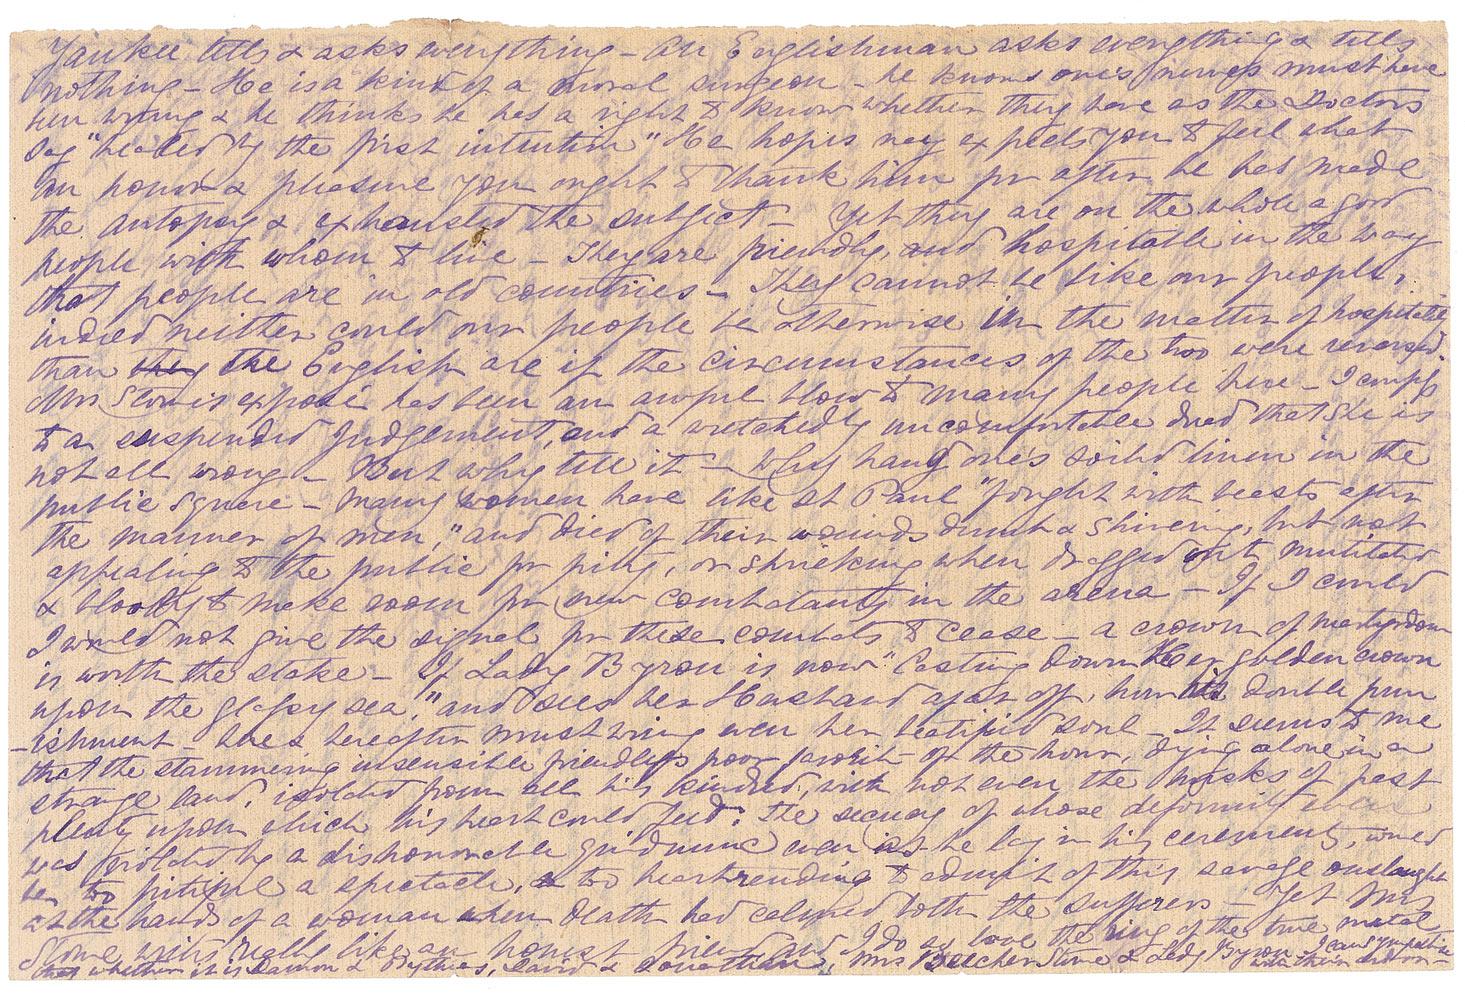 Yankee tells & asks everything – An Englishman asks everything & tells
nothing – He is a kind of a moral surgeon – he knows one's nerves must have
been wrung & he thinks he has a right to know whether they have as the Doctors
say "healed by the first intention" He hopes nay expects you to feel what
an honor & pleasure you ought to thank him for after he has made
the autopsy & exhausted the subject – Yet they are on the whole a good
people with whom to live – They are friendly, and hospitable in the way
that people are in old countries – They cannot be like our people,
indeed neither could our people be otherwise in the matter of hospitality
than they the English are if the circumstances of the two were reversed.
Mrs Stowe's exposé has been an awful blow to many people here – I confess
to a suspended judgement, and a wretchedly uncomfortable dread that she is
not all wrong – But why tell it – Why hang one's soiled linen in the
public square – Many women have like St Paul "fought with beasts after
the manner of men," and died of their wounds dumb & shivering, but not
appealing to the public for pity, or shrieking when dragged out mutilated
& bloody to make room for new combatants in the arena – If I could
I would not give the signal for these combats to cease – a crown of martyrdom
is worth the stake – If Lady Byron is now "Casting down Her golden crown
upon the glassy sea," and sees her Husband afar off, his double pun
-ishment – here & hereafter must wring even her beatified soul – It seems to me
that the stammering insensible friendless poor favorite of the hour, dying alone in a
strange land, isolated from all his kindred, with not even the husks of past
plenty upon which his heart could feed: The secrecy of whose deformity even
was violated by a dishonorable guidance even as he lay in his cerements, would
be too pitiful a spectacle, too heartrending to admit of this savage onslaught
at the hands of a woman when death had calmed both the sufferers – Yet Mrs
Stowe writes really like an honest friend and I do so love the ring of the true metal
that whether it is Damon & Pythias, David & Jonathan, Mrs Beecher Stowe & Lady Byron I can sympathise with their